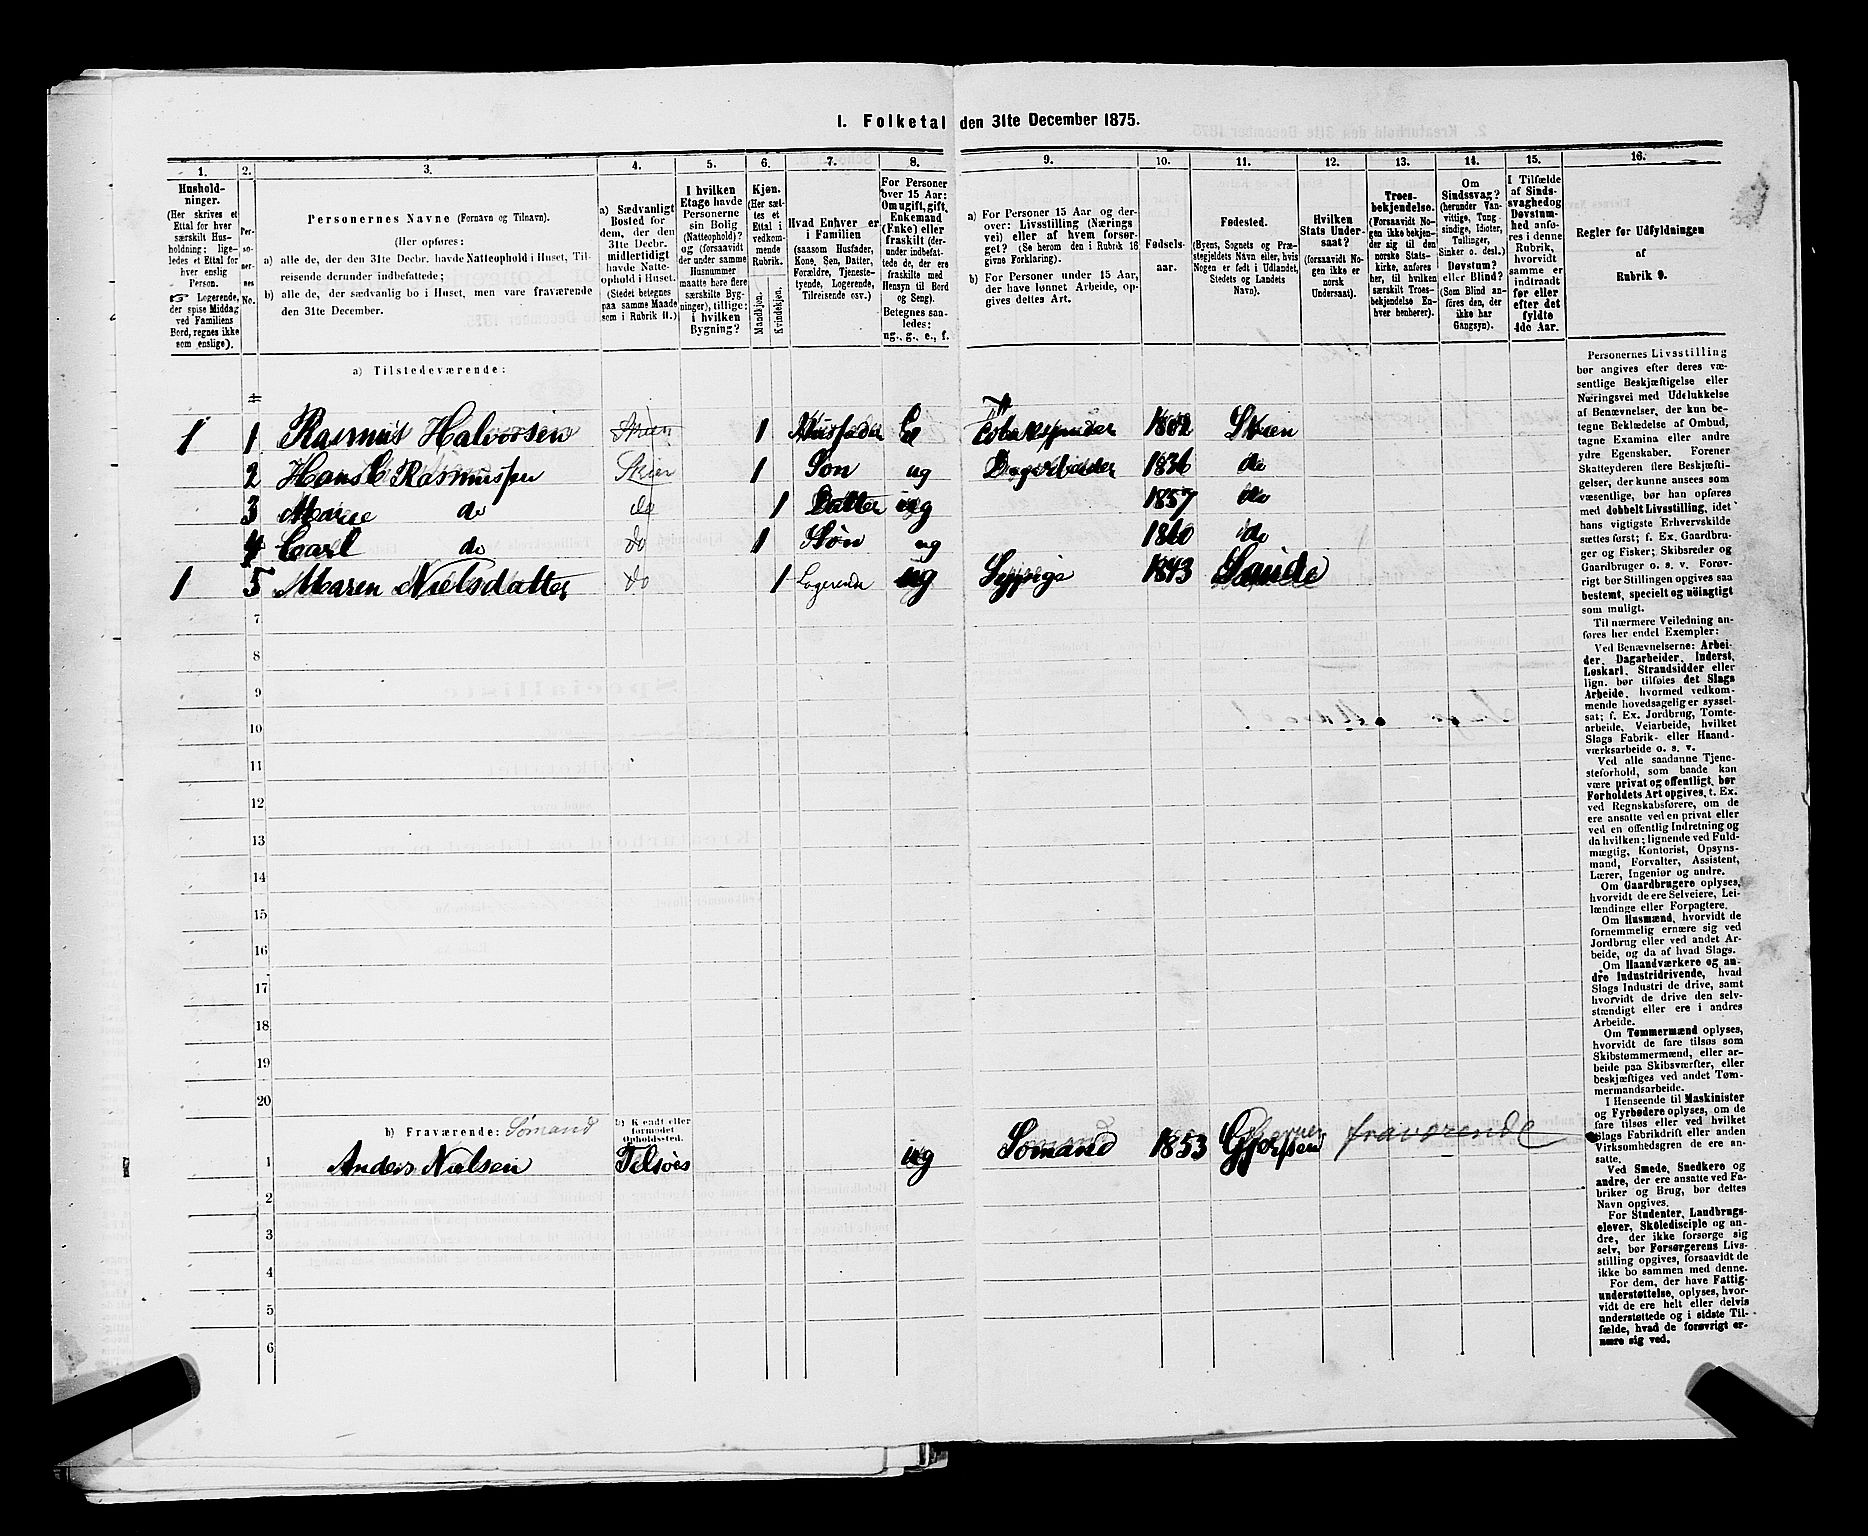 1. Folketal den 31te December 1875.
1. 2. 3. 4. 5. 6. 7. 8. 9. 10. 11. 12. 13. 14. 15. 16.
Hushold-
ninger.
(Her skrives et
Ettal for hver
særskilt Hus-
holdning; lige-
ledes et Ettal for
hver enslig
Person.
☞ Logerende,
der spise Middag
ved Familiens
Bord, regnes ikke
som enslige).
Per-
so-
ner-
nes
No.
Personernes Navne (Fornavn og Tilnavn).
(Her opføres:
a) alle de, der den 31te Decbr. havde Natteophold i Huset, Til-
reisende derunder indbefattede;
b) alle de, der sædvanlig bo i Huset, men vare fraværende
den 31te December.
a) Sædvanligt
Bosted for
dem, der den
31te Decbr.
midlertidigt
havde Natte-
ophold i Huset.
(Stedet betegnes
paa samme Maade
som i Rubrik 11.)
I hvilken
Etage havde
Personerne
sin Bolig
(Natteophold)?
og (forsaavidt
der under samme
Husnummer
maatte høre flere
særskilte Byg-
ninger), tillige:
i hvilken
Bygning?
Kjøn.
(Her sæt-
tes et
Ettal i
vedkom-
mende
Rubrik.
Mandkjøn.
Kvindekjøn.
Hvad Enhver er
i Familien
(saasom Husfader,
Kone, Søn, Datter,
Forældre, Tjeneste-
tyende, Logerende,
Tilreisende osv.)
For Personer
over 15 Aar:
Om ugift, gift,
Enkemand
(Enke) eller
fraskilt (der-
under indbefat-
tede de, der ere
fraskilte med
Hensyn til Bord
og Seng).
Betegnes saa-
ledes:
ug., g., e., f.
a) For Personer 15 Aar og der-
over: Livsstilling (Nærings
vei) eller af hvem forsør-
get? (Se herom den i Rubrik 16
givne Forklaring).
b) For Personer under 15 Aar,
der have lønnet Arbeide, op-
gives dettes Art.
Fødsels-
aar.
Fødested.
(Byens, Sognets og Præ-
stegjeldets Navn eller, hvis
Nogen er født i Udlandet,
Stedets og Landets
Navn).
Hvilken
Stats Under-
saat?
(forsaavidt No-
gen ikke er
norsk
Undersaat).
Troes-
bekjendelse.
(Forsaavidt No-
gen ikke bekjen-
der sig til den
norske Stats-
kirke, anføres
her, til hvilken
særskilt Troes-
bekjendelse En-
hver henhører).
Om
Sindssvag?
(herunder Van-
vittige, Tung
sindige, Idioter,
Tullinger,
Sinker o. desl.)
Døvstum?
eller Blind?
(Som Blind an-
føres den, der
ikke har
Gangsyn).
I Tilfælde
af Sinds-
svaghed og
Døvstum-
hed anfø-
res i denne
Rubrik,
hvorvidt
samme er
indtraadt
før eller
efter det
fyldte
4de Aar.
Regler for Udfyldningen
af
Rubrik 9.
a) Tilstedeværende:
1 1 Rasmus Halvorsen Skien 1 Husfader E 1802 Skien
2 Hans Rasmussen Skien 1 Søn ug Dagarbeider 1836 do
3 Marie do do 1 Datter ug 1857 do
4 Carl do do 1 Søn ug 1860 do
1 5 Maren Nielsdatter do 1 Logerende ug 1843 Sande
7
8
9
10
11
12
13
14
15
16
17
18
19
20
b) Fraværende: Sømand
b) Kjendt eller
formodet
Opholdssted.
1 Anders Nielsen Tilsøes ug Sømand 1853 Gjerpen fraværende
2
3
4
5
6
Personernes Livsstilling
bør angives efter deres væ-
sentlige Beskjæftigelse eller
Næringsvei med Udelukkelse
af Benævnelser, der kun be-
tegne Beklædelse af Ombud,
tagne Examina eller andre
ydre Egenskaber. Forener
Skatteyderen flere Beskjæfti-
gelser, der kunne ansees som
væsentlige, bør han opføres
med dobbelt Livsstilling, idet
hans vigtigste Erhvervskilde
sættes først; f. Ex. Gaardbru-
ger og Fisker; Skibsreder og
Gaardbruger o. s. v. Forøv-
rigt bør Stillingen opgives saa
bestemt, specielt og nöiagtigt
som muligt.
Til nærmere Veiledning an-
føres her endel Exempler:
Ved Benævnelserne: Arbei-
der, Dagarbeider, Inderst,
Løskarl, Strandsidder eller
lign. bør tilføies det Slags
Arbeide, hvormed vedkom-
mende hovedsagelig er syssel-
sat; f. Ex. Jordbrug, Tomte-
arbeide, Veiarbeide, hvilket
Slags Fabrik- eller Haand-
værksarbeide o. s. v.
Ved alle saadanne Tjene-
steforhold, som baade kan
være privat og offentligt, bør
Forholdets Art opgives, t. Ex.
ved Regnskabsførere, om de
ere ansatte ved en privat eller
ved en offentlig Indretning og
da hvilken; lignende ved Fuld-
mægtig, Kontorist, Opsyns-
mand, Forvalter, Assistent,
Lærer, Ingeniør og andre.
Om Gaardbrugere oplyses,
hvorvidt de ere Selveiere, Lei-
lændinge eller Forpagtere.
Om Husmænd, hvorvidt de
fornemmelig ernære sig ved
Jordbrug eller ved andet Ar-
beide, og da af hvad Slags.
Om Haandværkere og an-
dre Industridrivende, hvad
Slags Industri de drive, samt
hvorvidt de drive den selv-
stændigt eller ere i andres
Arbeide.
Om Tømmermænd oplyses,
hvorvidt de fare tilsøs som
Skibstømmermænd, eller ar-
beide paa Skibsværfter, eller
beskjæftiges ved andet Tøm-
mermandsarbeide.
I Henseende til Maskinister
og Fyrbødere oplyses, om de
fare tilsøs eller ved hvilket
Slags Fabrikdrift eller anden
Virksomhedsgren de ere an-
satte.
Ved Smede, Snedkere og
andre, der ere ansatte ved Fa-
briker og Brug, bør dettes
Navn opgives.
For Studenter, Landbrugs-
elever, Skoledisciple og an-
dre, der ikke forsørge sig
selv, bør Forsørgerens Livs-
stilling opgives, forsaavidt de
ikke bo sammen med denne.
For dem, der have Fattig-
understøttelse, oplyses, hvor-
vidt de ere helt eller delvis
understøttede og i sidste Til-
fælde, hvad de forøvrigt er-
nære sig ved.